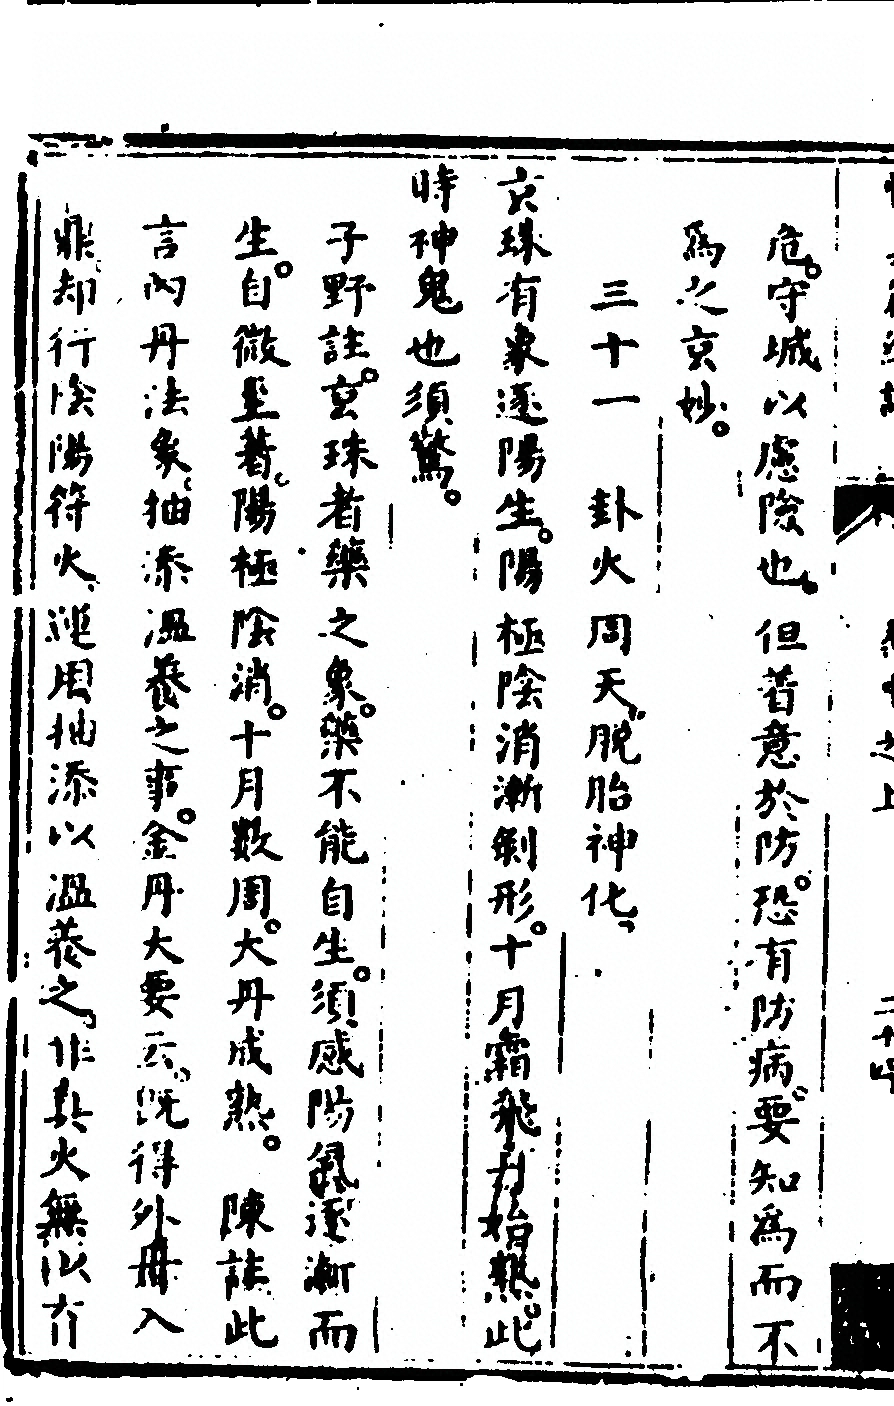 危守城以慮險也但著意於防恐有防病要知為而不
為之玄妙
三十一 卦火周天脫胎神化
玄珠有象逐陽生陽極陰消漸剝形十月霜飛丹始熟此
時神鬼也須驚
子野註玄珠者藥之象藥不能自生須感陽氣逐漸而
生自微至著陽極陰消十月數周大丹成熟 陳註此
言內丹法象抽添溫養之事金丹大要云既得外丹入
鼎却行陰陽符火運用抽添以溫養之非真火無以育